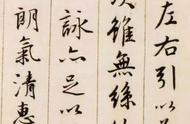 左右引以
雖無絲
詠亦足以
朗氣清惠